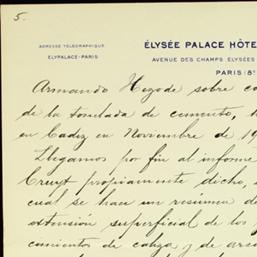 5.
ADRESSE TÉLÉGRAPHIQUE
ELYPALACE-PARIS
ÉLYSÉE PALACE HÔTE
AVENUE DES CHAMPS ELYSÉES
PARIS (8
Armando Hezode sobre co
de la tonelada de cemento,
en Cadiz en Noviembre de 19
Llegamos por fin al informe
Cruyt propiamente dicho,
cual se hace un resumen de
extensión superficial de los
camientos de cobza y de ars